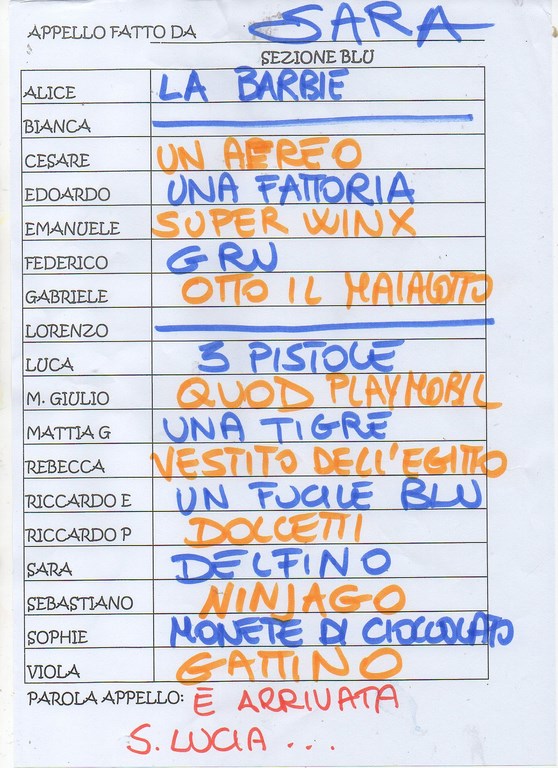 APPELLO FATTO DA SARA
SEZIONE BLU
ALICE LA BARBIE
BIANCA
CESARE UN AEREO
EDOARDO UNA FATTORIA
EMANUELE SUPER WINX
FEDERICO GRU
GABRIELE OTTO IL MAIALOTTO
LORENZO
LUCA 3 PISTOLE
M. GIULIO QUOD PLAYMOBIL
MATTIA G UNA TIGRE
REBECCA VESTITO DELL'EGITTO
RICCARDO E UN FUCILE BLU
RICCARDO P DOLCETTI
SARA DELFINO
SEBASTIANO NINJAGO
SOPHIE MONETE DI CIOCCOLATO
VIOLA GATTINO
PAROLA APPELLO: È ARRIVATA
S. LUCIA ...